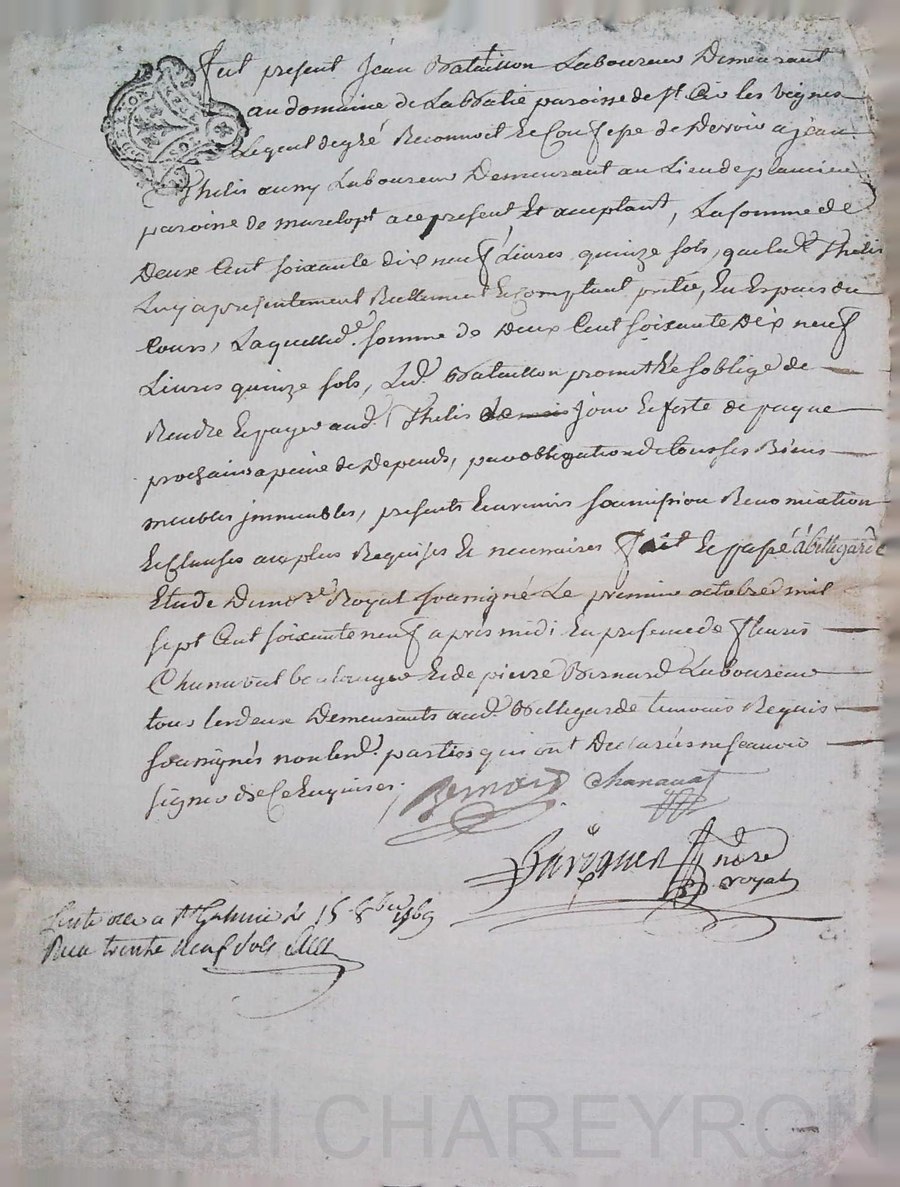 Fut present Jean Bataillon Laboureur Demeurant
au domaine de Labatie paroisse de St Cir les vignes
Lequel de gré Reconnoit Et Confesse de Devoir a jean
Thelis auny Laboureur Demeurant au Lieu de plancieu
paroisse de marclopt ace present Et aceptant, La somme de
Deux Cent soixante dix neuf Livres quinze sols, que led. Thelis
Luy a presentement Reellement Et Comptant pretté, En Espaces du
Cours, Laquelled. somme de Deux Cent soixante Dix neuf
Livres quinze sols, Led. Bataillon promet Et s'oblige de
Rendre Et payer aud. Thelis jour Et feste de paque
prochain a peine de Depends, par obligation de tous ses Biens
meubles jmmeubles, presents Et avenirs soumission Renonciation
Et Clauses au plus Requises Et necessaires Fait Et passé à bellegarde
Etude Du nore Royal soussigné Le premier octobre mil
sept Cent soixante neuf apres midi En presence de fleuris
Chanavat boulanger Et de pierre Bernard Laboureur
tous les deux Demeurants aud. Bellegarde temoins Requis
soussignés non lesd. parties qui ont Declarés ne scavoir
signer de Ce Enquises.
Bernard Chanavat
nore
royal
a St Galmier le 15 8bre 1769
Reçu trente neuf sols
Pascal CHAREYRON